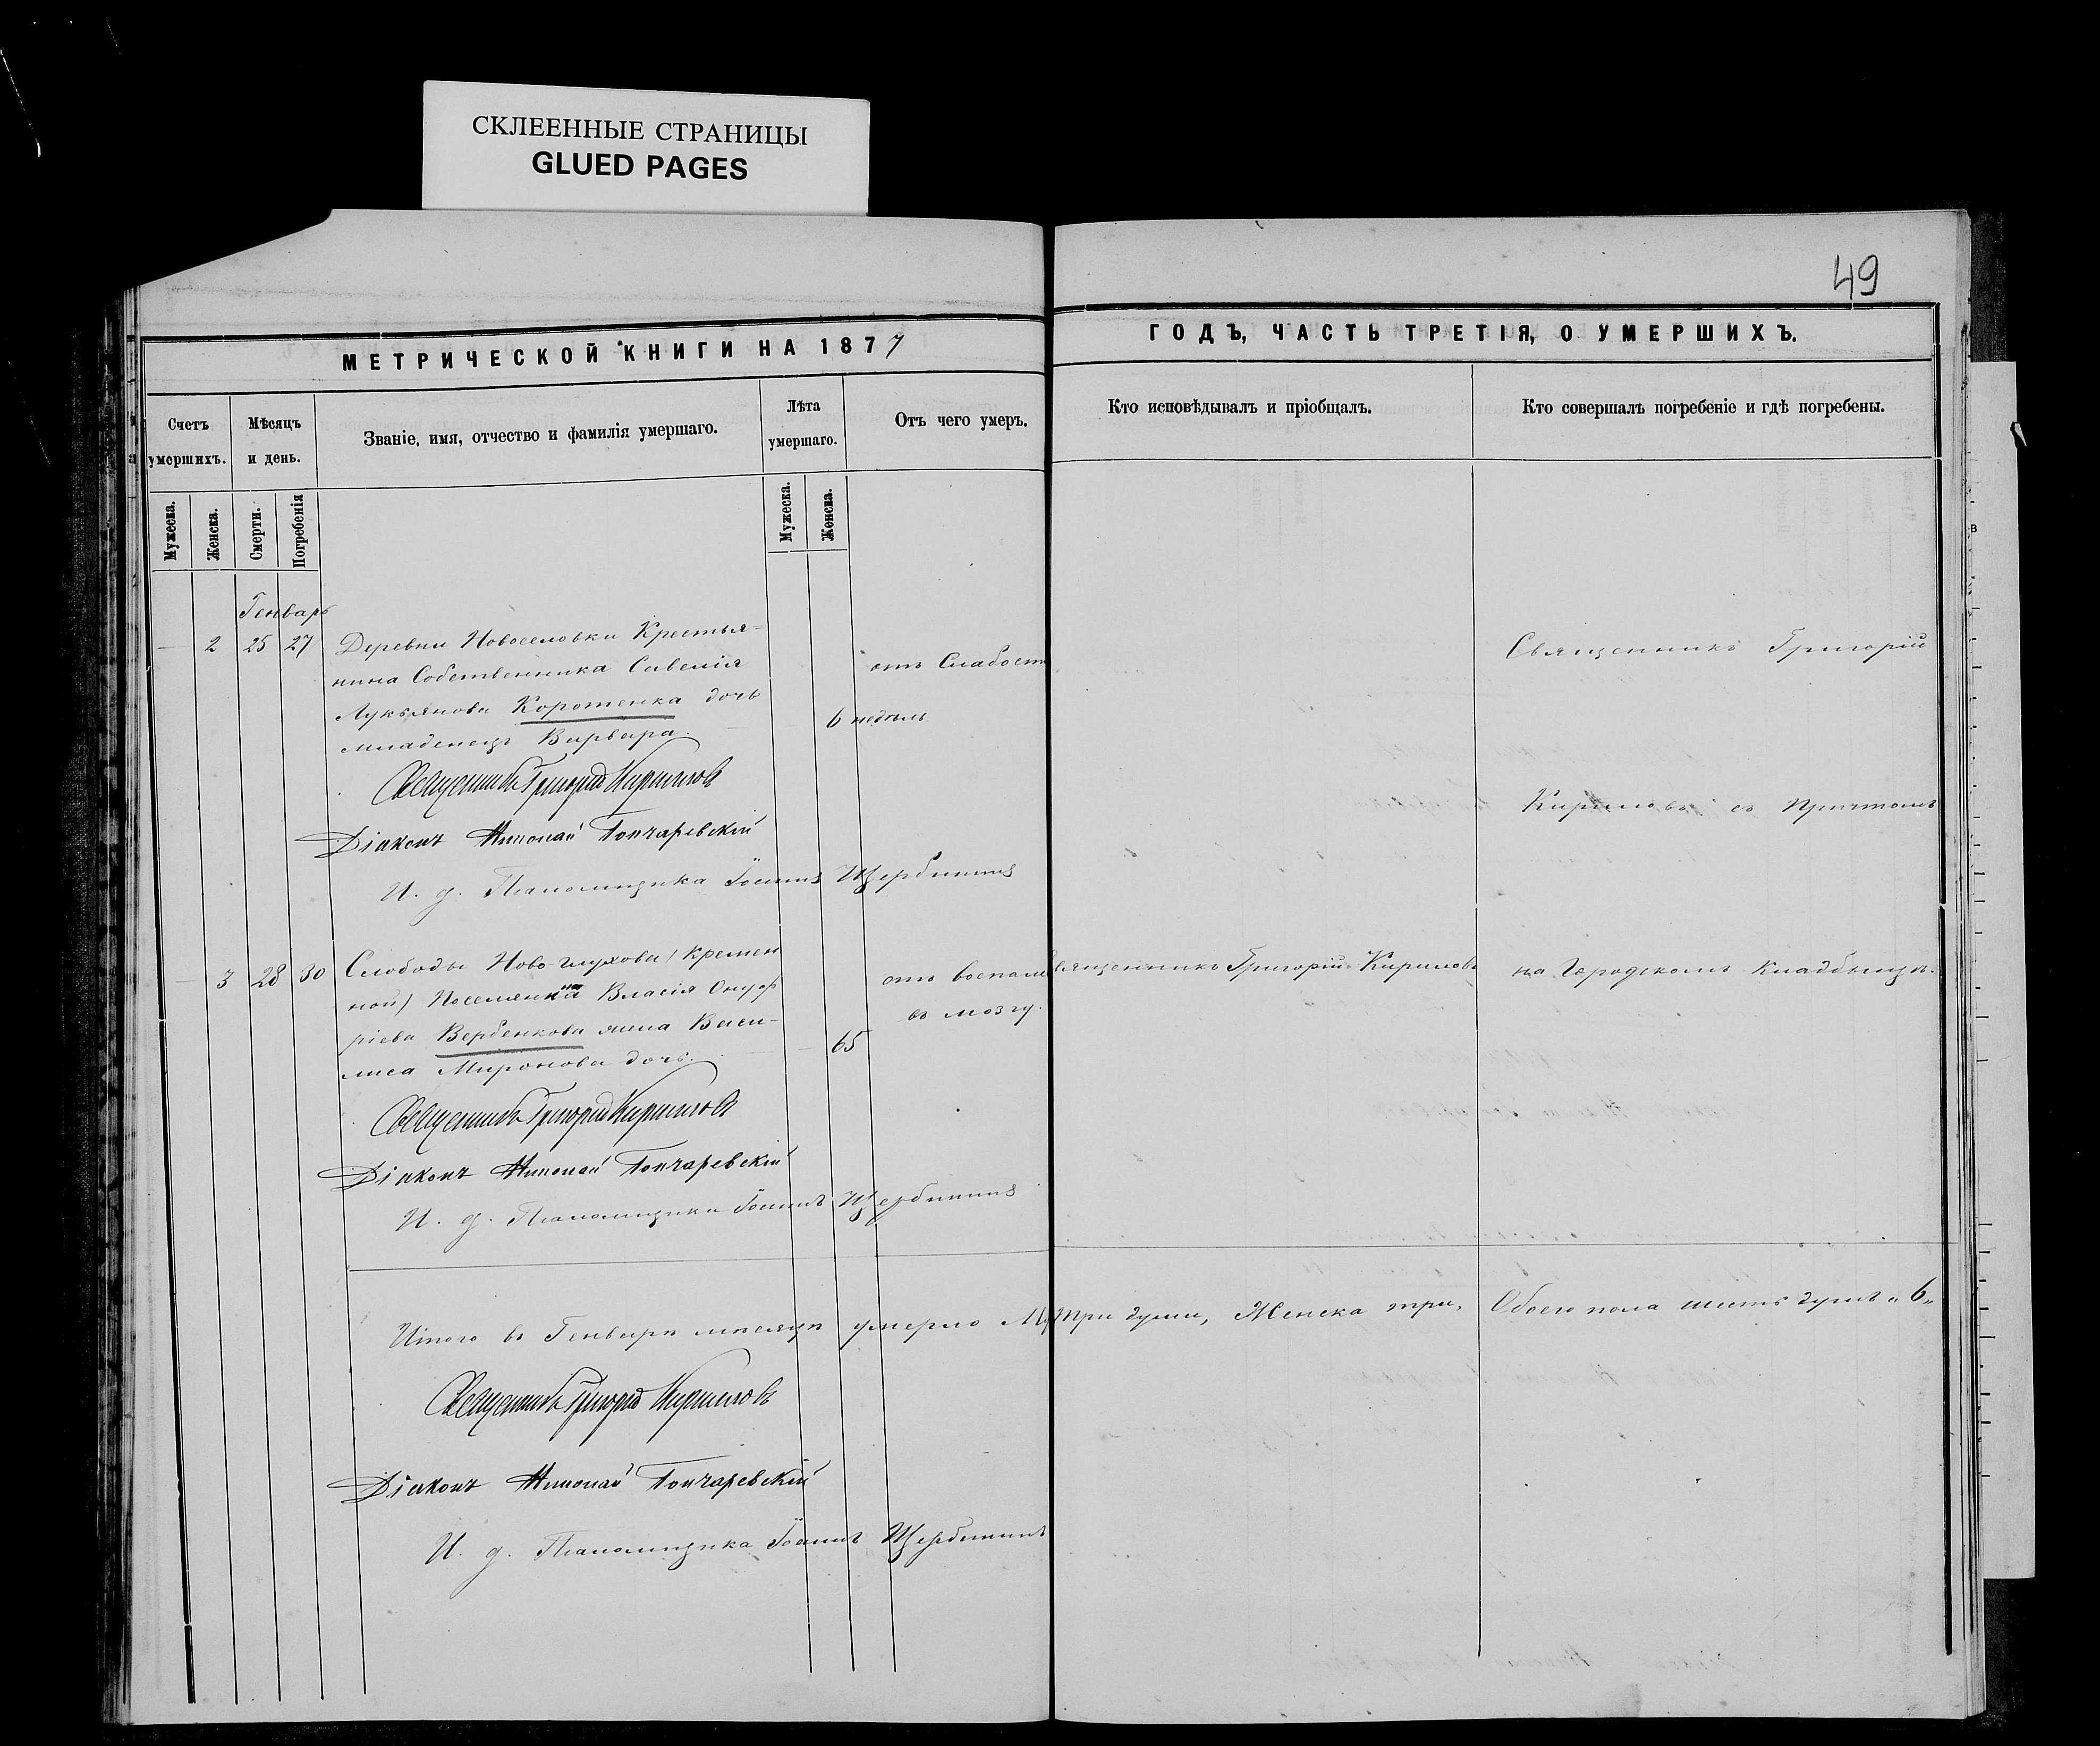 СКЛЕЕННЫЕ СТРАНИЦЫ
GLUED PAGES
49
МЕТРИЧЕСКОЙ КНИГИ НА 1877
ГОДЪ, ЧАСТЬ ТРЕТІЯ, О УМЕРШИХЪ.
Счетъ умершихъ.
Мѣсяцъ и день.
Званіе, имя, отчество и фамилія умершаго.
Лѣта умершаго.
Отъ чего умеръ.
Кто исповѣдывалъ и пріобщалъ.
Кто совершалъ погребеніе и гдѣ погребены.
Мужеска.
Женска.
Смерти.
Погребенія
Мужеска.
Женска.
Генварь
2 25 27 Деревни Новоселовки Крестья-
нина Собственника Савелія
Лукьянова Коротенка дочь
младенецъ Варвара.
6 недѣль
отъ Слабост
Священникъ Григорій
Кириловъ съ Причтомъ
Священникъ Григорій Кириловъ
Діаконъ Николай Гончаревскій
И. д. Псаломщика Іоаннъ Щербининъ
3 28 30 Слободы Ново-глухова (Кремен
ной) Поселянина Власія Онуф
ріева Вербенкова жена Васи-
лиса Миронова дочь.
65
отъ воспал
въ мозгу.
Священникъ Григорій Кириловъ
на Городскомъ Кладбищѣ.
Священникъ Григорій Кириловъ
Діаконъ Николай Гончаревскій
И. д. Псаломщика Іоаннъ Щербининъ
Итого въ Генварѣ мѣсяцѣ умерло Му три души, Женска три, Обоего пола шесть душъ „6„
Священникъ Григорій Кириловъ
Діаконъ Николай Гончаревскій
И. д. Псаломщика Іоаннъ Щербининъ